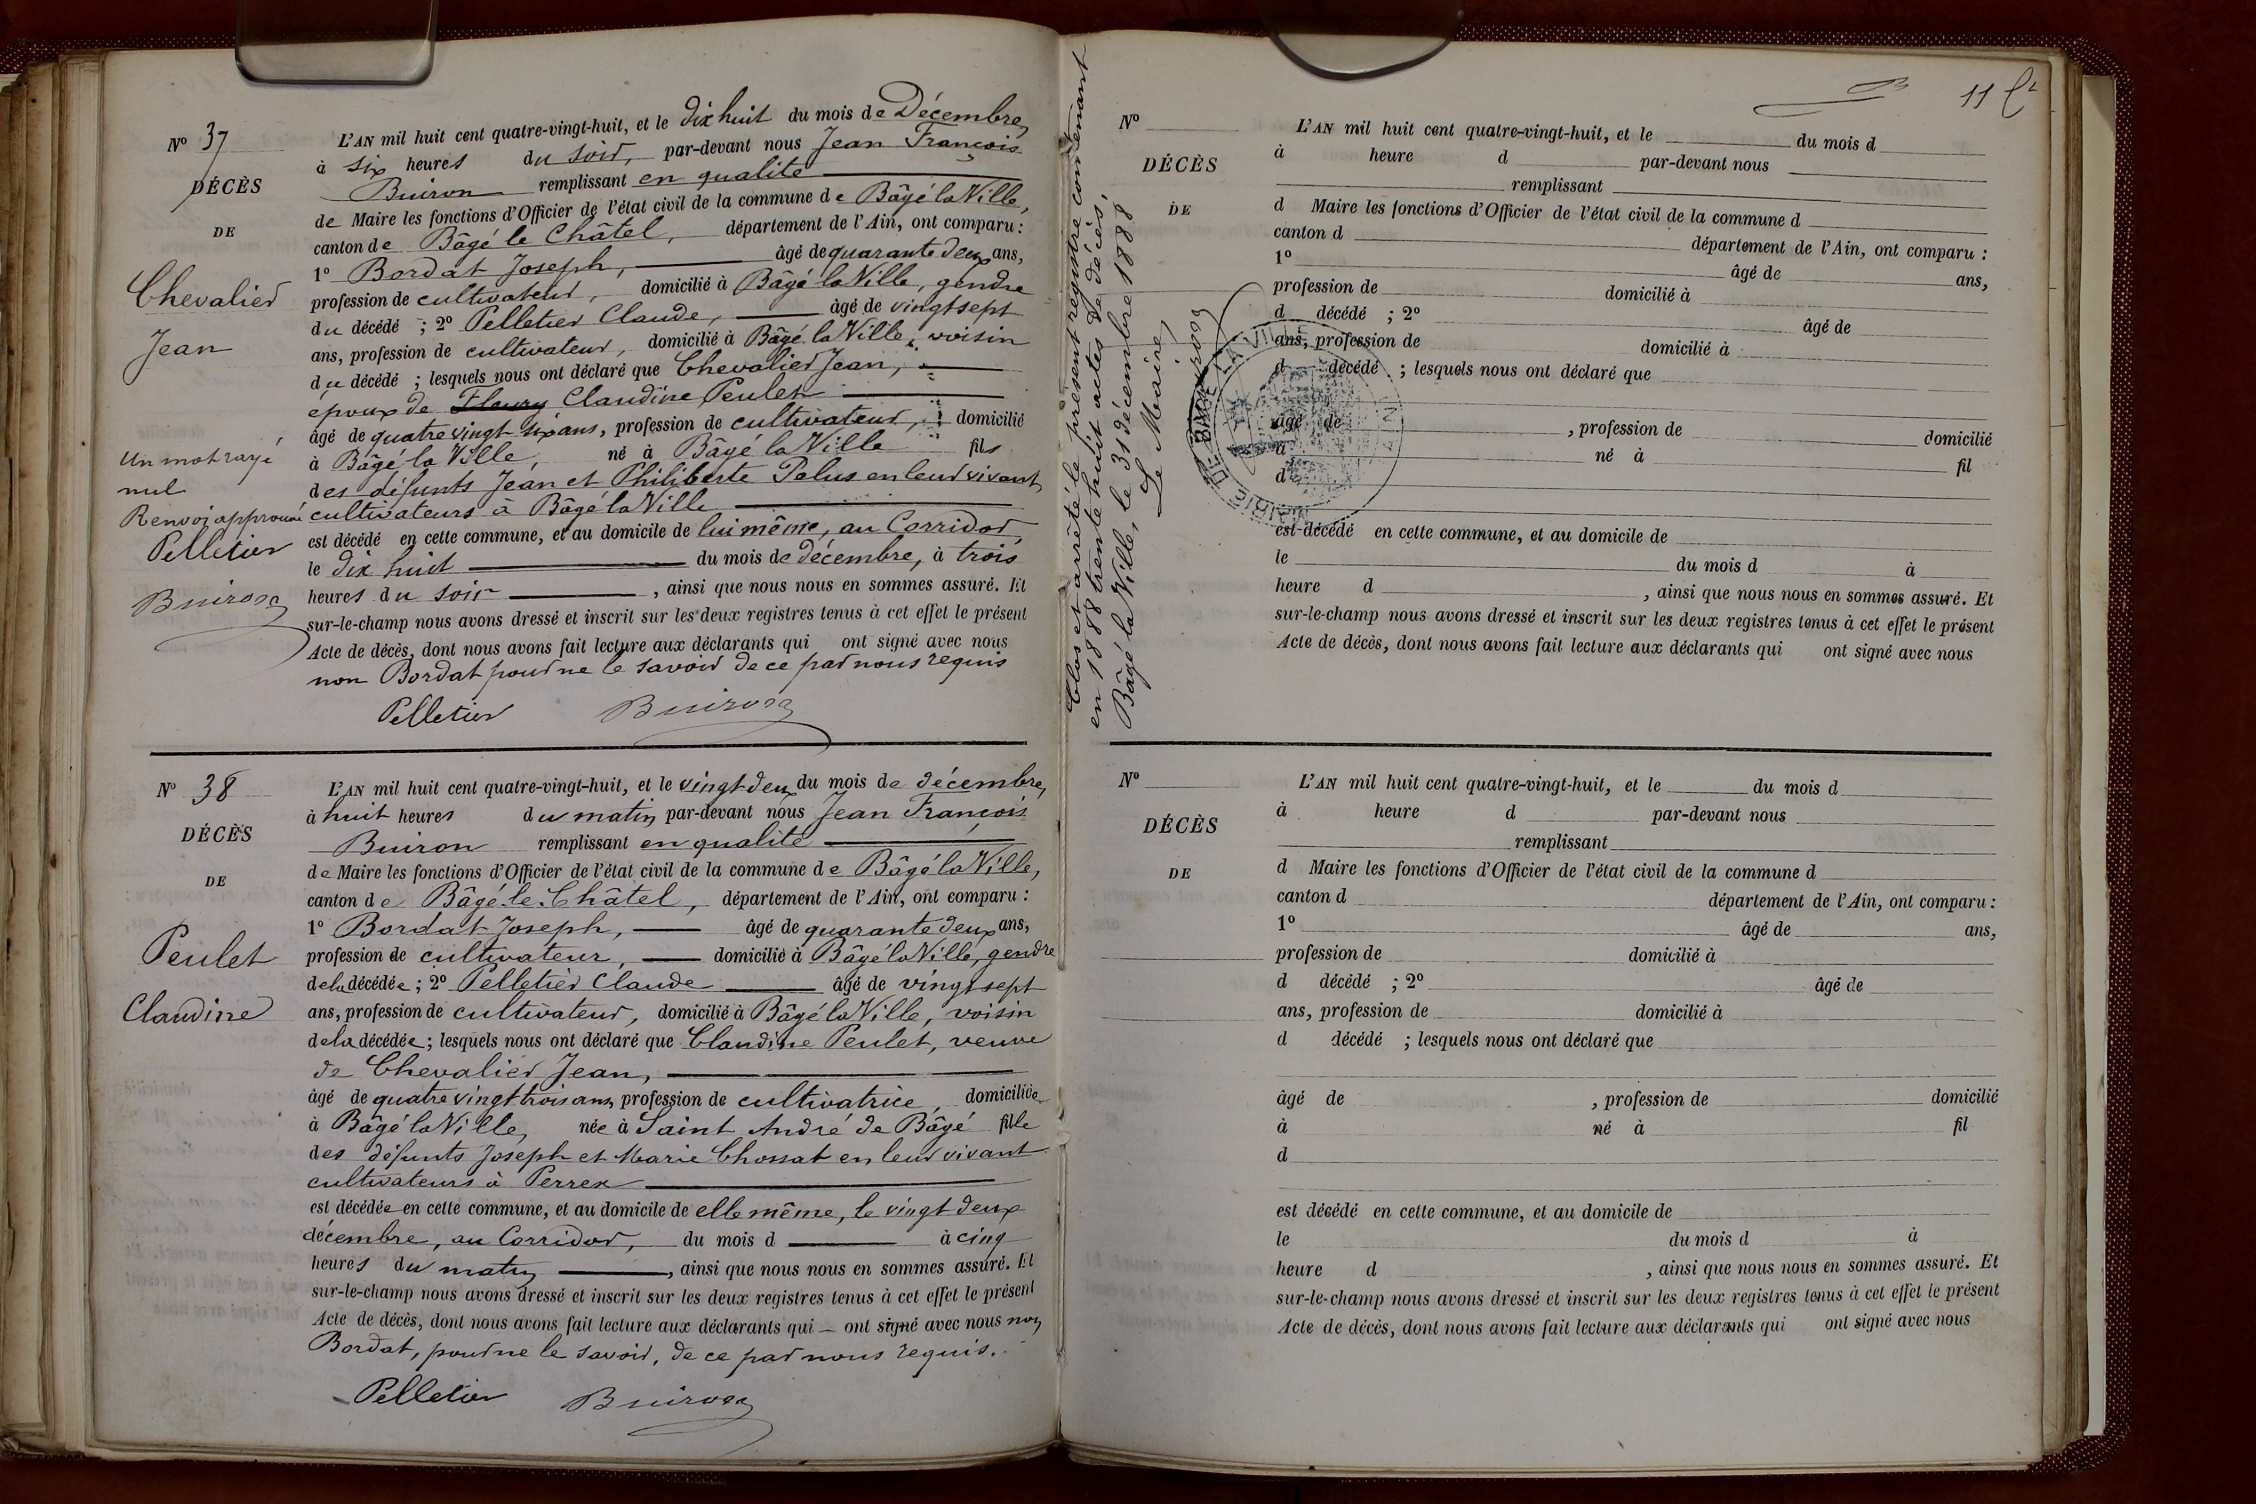 N° 37
DÉCÈS
DE
Chevalier
Jean
Un mot rayé
nul
Renvoi approuvé
Pelletier
Buiron
L'AN mil huit cent quatre-vingt-huit, et le dix huit du mois de Décembre,
à six heures du soir, par-devant nous Jean François
Buiron remplissant en qualité
de Maire les fonctions d'Officier de l'état civil de la commune de Bâgé la Ville,
canton de Bâgé le Châtel, département de l'Ain, ont comparu :
1° Bordat Joseph, âgé de quarante deux ans,
profession de cultivateur, domicilié à Bâgé la Ville, gendre
du décédé ; 2° Pelletier Claude, âgé de vingt sept
ans, profession de cultivateur, domicilié à Bâgé la Ville, voisin
du décédé ; lesquels nous ont déclaré que Chevalier Jean,
époux de Fleury Claudine Peulet
âgé de quatre vingt six ans, profession de cultivateur, domicilié
à Bâgé la Ville, né à Bâgé la Ville fils
des défunts Jean et Philiberte Palus en leur vivant
cultivateurs à Bâgé la Ville
est décédé en cette commune, et au domicile de lui même, au Corridor,
le dix huit du mois de décembre, à trois
heures du soir, ainsi que nous nous en sommes assuré. Et
sur-le-champ nous avons dressé et inscrit sur les deux registres tenus à cet effet le présent
Acte de décès, dont nous avons fait lecture aux déclarants qui ont signé avec nous
non Bordat pour ne le savoir de ce par nous requis
Pelletier Buiron
N° 38
DÉCÈS
DE
Peulet
Claudine
L'AN mil huit cent quatre-vingt-huit, et le vingt deux du mois de décembre,
à huit heures du matin, par-devant nous Jean François
Buiron remplissant en qualité
de Maire les fonctions d'Officier de l'état civil de la commune de Bâgé la Ville,
canton de Bâgé-le-Châtel, département de l'Ain, ont comparu :
1° Bordat Joseph, âgé de quarante deux ans,
profession de cultivateur, domicilié à Bâgé la Ville, gendre
de la décédée ; 2° Pelletier Claude âgé de vingt sept
ans, profession de cultivateur, domicilié à Bâgé la Ville, voisin
de la décédée ; lesquels nous ont déclaré que Claudine Peulet, veuve
de Chevalier Jean,
âgé de quatre vingt trois ans, profession de cultivatrice, domiciliée
à Bâgé la Ville, née à Saint André de Bâgé fille
des défunts Joseph et Marie Chossat en leur vivant
cultivateurs à Perrex
est décédée en cette commune, et au domicile de elle même, le vingt deux
décembre, au Corridor, du mois d à cinq
heures du matin, ainsi que nous nous en sommes assuré. Et
sur-le-champ nous avons dressé et inscrit sur les deux registres tenus à cet effet le présent
Acte de décès, dont nous avons fait lecture aux déclarants qui — ont signé avec nous non
Bordat, pour ne le savoir, de ce par nous requis.
Pelletier Buiron
Clos et arrêté le présent registre contenant
en 1888 trente huit actes de décès,
Bâgé la Ville, le 31 décembre 1888
Le Maire,
Buiron
MAIRIE DE BAGÉ LA VILLE AIN
11
N°
DÉCÈS
DE
L'AN mil huit cent quatre-vingt-huit, et le du mois d
à heure d par-devant nous
remplissant
d Maire les fonctions d'Officier de l'état civil de la commune d
canton d département de l'Ain, ont comparu :
1° âgé de ans,
profession de domicilié à
d décédé ; 2° âgé de
ans, profession de domicilié à
d décédé ; lesquels nous ont déclaré que
âgé de , profession de domicilié
à né à fil
d
est décédé en cette commune, et au domicile de
le du mois d à
heure d , ainsi que nous nous en sommes assuré. Et
sur-le-champ nous avons dressé et inscrit sur les deux registres tenus à cet effet le présent
Acte de décès, dont nous avons fait lecture aux déclarants qui ont signé avec nous
N°
DÉCÈS
DE
L'AN mil huit cent quatre-vingt-huit, et le du mois d
à heure d par-devant nous
remplissant
d Maire les fonctions d'Officier de l'état civil de la commune d
canton d département de l'Ain, ont comparu :
1° âgé de ans,
profession de domicilié à
d décédé ; 2° âgé de
ans, profession de domicilié à
d décédé ; lesquels nous ont déclaré que
âgé de , profession de domicilié
à né à fil
d
est décédé en cette commune, et au domicile de
le du mois d à
heure d , ainsi que nous nous en sommes assuré. Et
sur-le-champ nous avons dressé et inscrit sur les deux registres tenus à cet effet le présent
Acte de décès, dont nous avons fait lecture aux déclarants qui ont signé avec nous